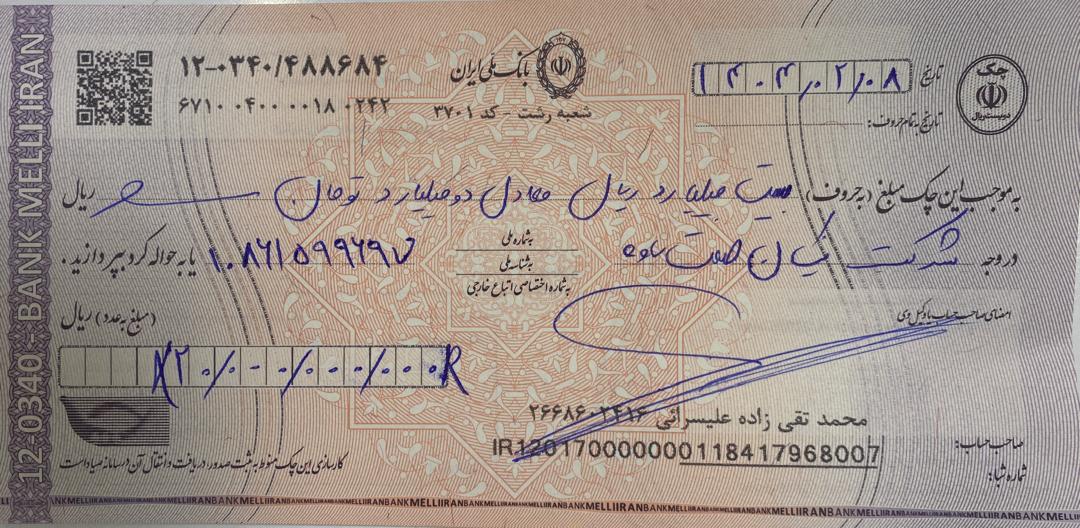 BANK MELLI IRAN
12-0340 - BANK MELLI IRAN
چک
در بیست ریال
تاریخ ۱۴۰۳/۰۲/۰۸
تاریخ به تمام حروف:
بانک ملی ایران
شعبه رشت - کد ۳۷۰۱
۱۲-۰۳۴۰/۴۸۸۶۸۴
۶۷۱۰ ۰۴۰۰ ۰۰۱۸ ۰۲۴۲
به موجب این چک مبلغ (به حروف) بیست میلیارد ریال معادل دو میلیارد تومان ریال
در وجه شرکت صنعت ساوه
به شماره ملی
به شناسه ملی
به شماره اختصاصی اتباع خارجی
یا به حواله کرد بپردازید.
امضای صاحب حساب یا وکیل وی
(مبلغ به عدد) ریال
۲۰/۰۰۰/۰۰۰/۰۰۰R
محمد تقی زاده علیسرائی ۲۶۶۸۶۰۲۴۱۶
صاحب حساب:
IR120170000000118417968007
شماره شبا:
کارسازی این چک منوط به ثبت صدور، دریافت و انتقال آن در سامانه صیاد است
BANKMELLIIRANBANKMELLIIRANBANKMELLIIRANBANKMELLIIRAN